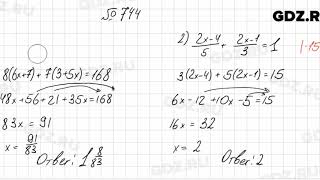 № 744
GDZ.R
8(6x+7)+7(3+5x)=168
48x+56+21+35x=168
83x = 91
x = 91/83
Ответ: 1 8/83
2) (2x-4)/5 + (2x-1)/3 = 1 |·15
3(2x-4)+5(2x-1)=15
6x-12+10x-5=15
16x = 32
x = 2
Ответ: 2
GDZ.R